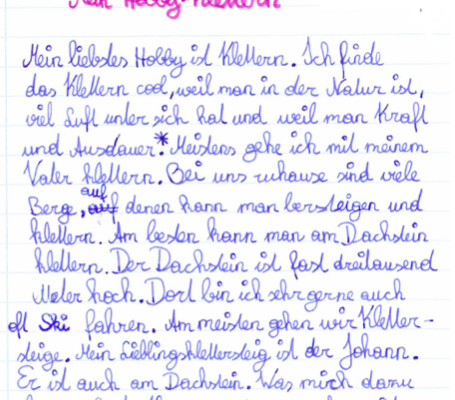 Mein Hobby: Klettern
Mein liebstes Hobby ist Klettern. Ich finde
das Klettern cool, weil man in der Natur ist,
viel Luft unter sich hat und weil man Kraft
und Ausdauer.* Meistens gehe ich mit meinem
Vater klettern. Bei uns zuhause sind viele
auf
Berge, auf denen kann man bersteigen und
klettern. Am besten kann man am Dachstein
klettern. Der Dachstein ist fast dreitausend
Meter hoch. Dort bin ich sehr gerne auch
oft Ski fahren. Am meisten gehen wir Kletter-
steige. Mein Lieblingsklettersteig ist der Johann.
Er ist auch am Dachstein. Was mich dazu